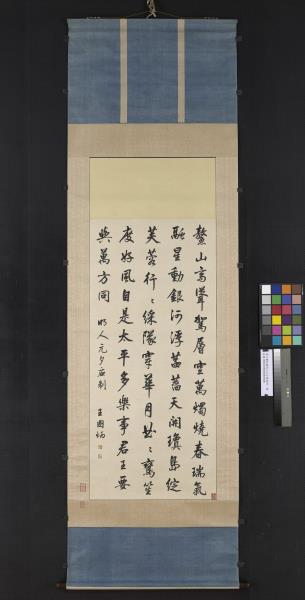 鰲山高聳駕層空萬燭燒春瑞氣
融星動銀河浮菡萏天開瓊島綻
芙蓉行〻綵隊穿華月曲〻鸞笙
度好風自是太平多樂事君王要
與萬方同 明人元夕應制
王國炳